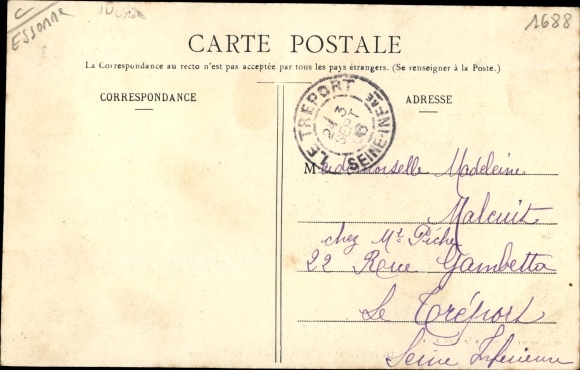 C
ESSONNE
1688
CARTE POSTALE
La Correspondance au recto n'est pas acceptée par tous les pays étrangers. (Se renseigner à la Poste.)
CORRESPONDANCE
ADRESSE
LE TREPORT
3
24
SEPT
06
SEINE-INFRE
Mademoiselle Madeleine
Malcuit
chez Mr. Piche
22 Rue Gambetta
Le Tréport
Seine Inferieure